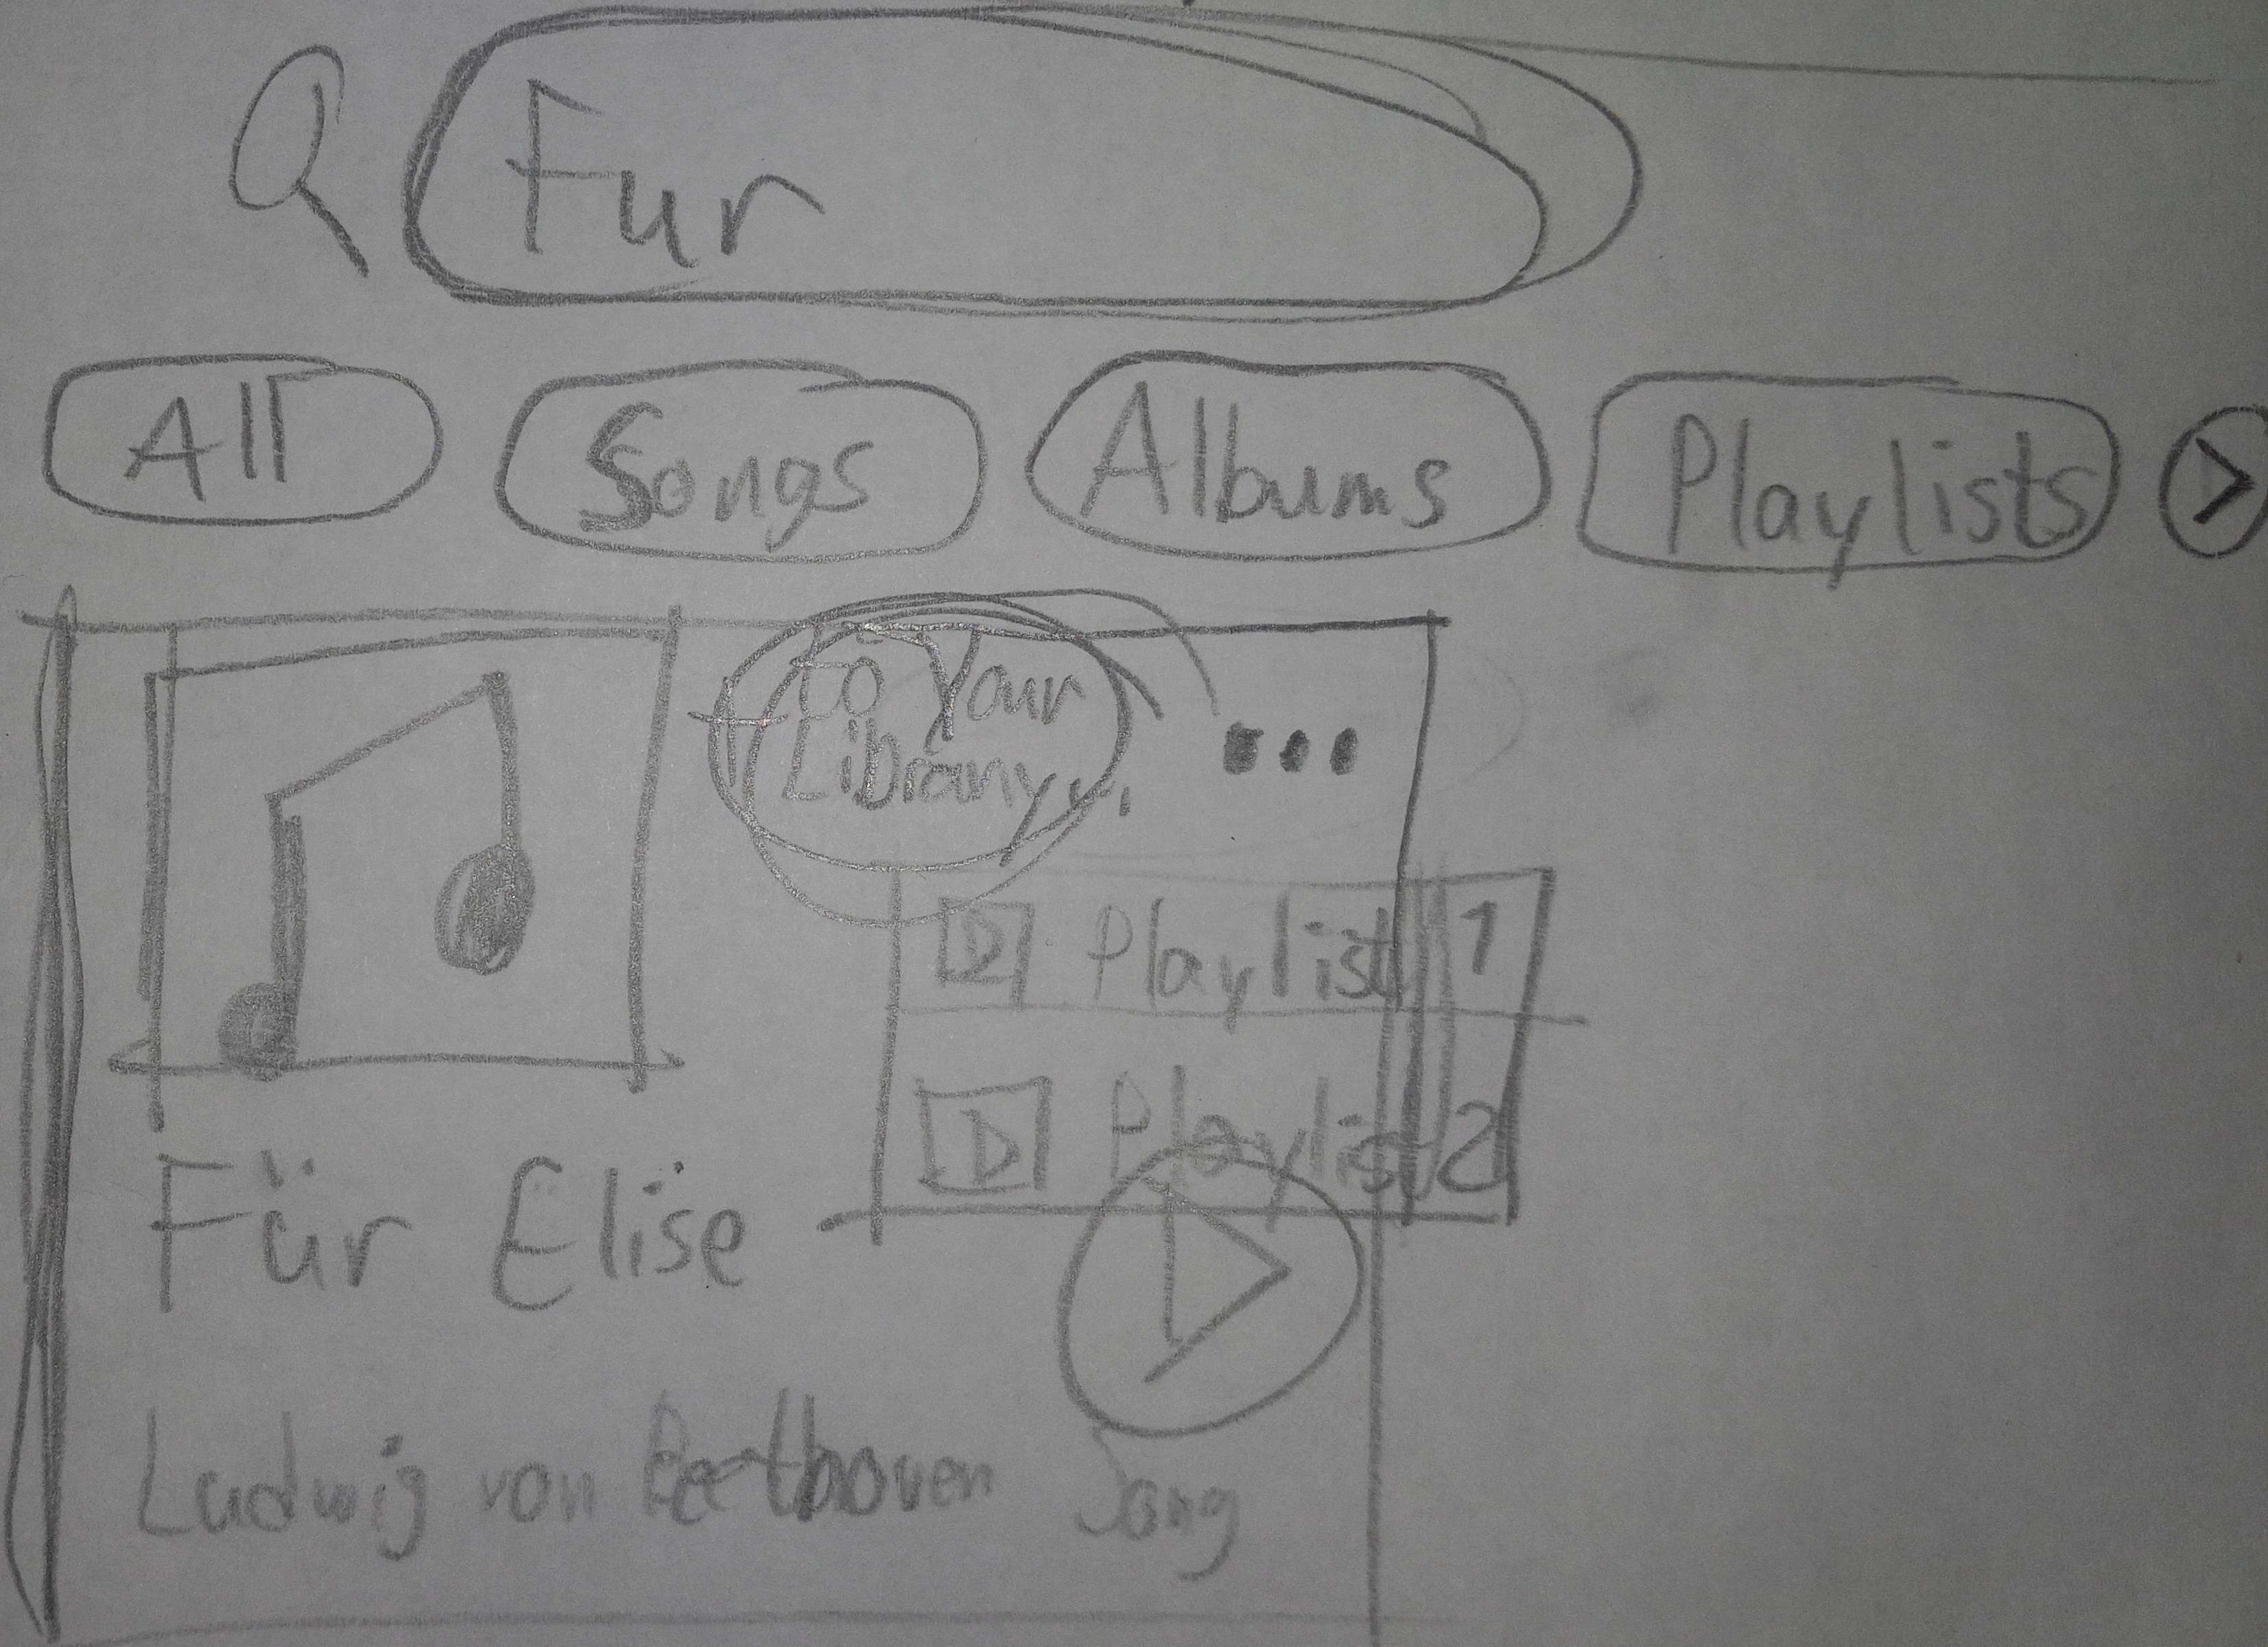 Fur
All Songs Albums Playlists >
+ to Your
Library...
...
Playlist 1
Playlist 2
Für Elise
Ludwig von Beethoven Song